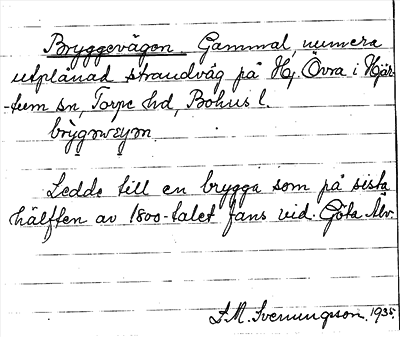 Bryggevägen. Gammal, numera
utplånad strandväg på Hj Övra i Hjär-
tum sn, Torpe hd, Bohus l.

Ledde till en brygga som på sista
hälften av 1800-talet fans vid Göta Älv.
S.M. Svenungsson, 1935.